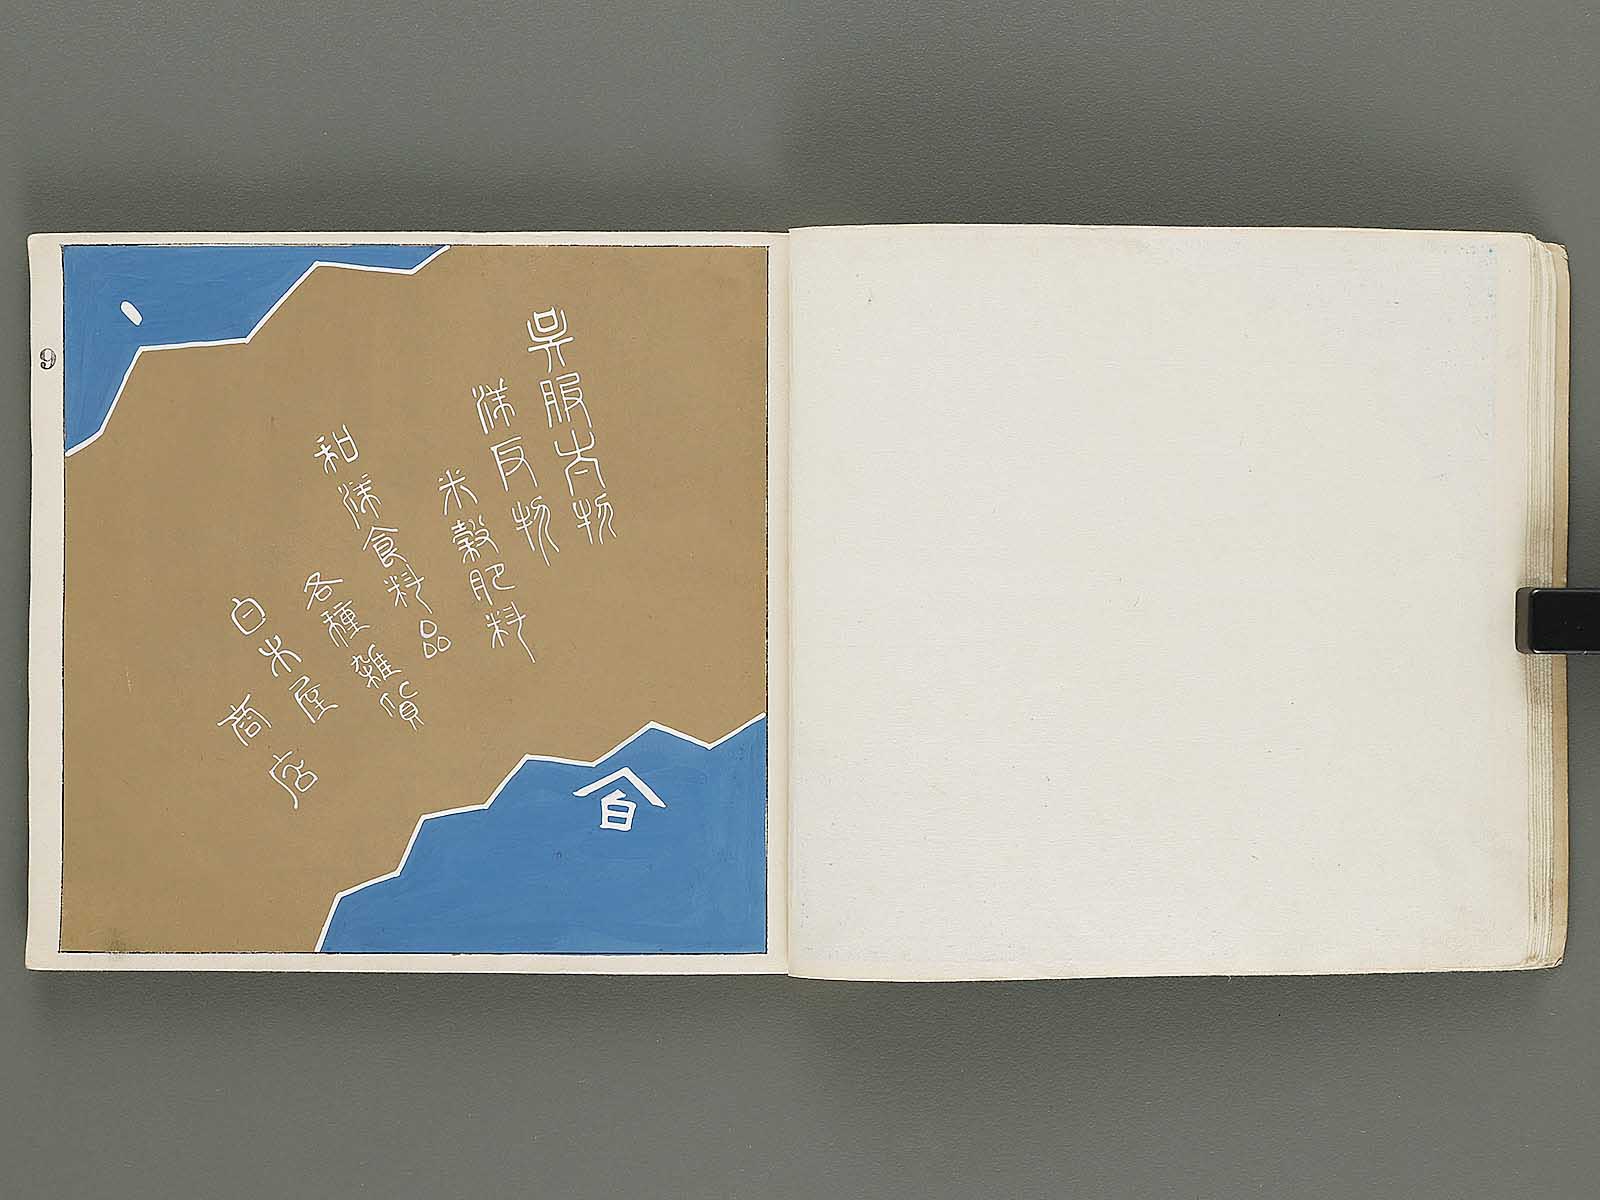 呉服太物
洋反物
米穀肥料
和洋食料品
各種雑貨
白木屋
商店
白
9